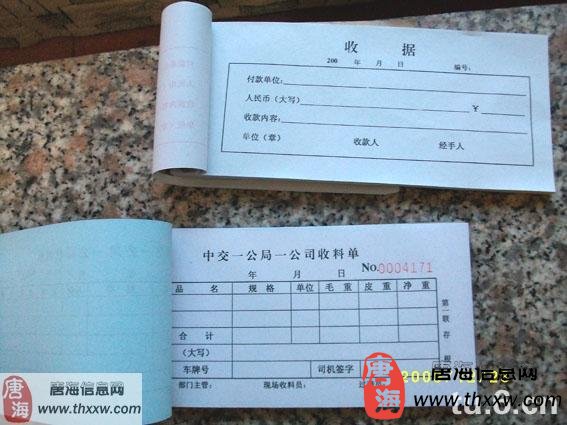 收 据
200 年 月 日 编号:
付款单位:
人民币(大写) ¥
收款内容:
单位(章) 收款人 经手人
中交一公局一公司收料单
年 月 日 No.0004171
品 名 规 格 单位 毛 重 皮 重 净 重
合 计
(大写)
车牌号 司机签字
部门主管: 现场收料员:
第一联 存
唐海
唐海信息网
www.thxxw.com
唐海
唐海信息网
www.thxxw.com